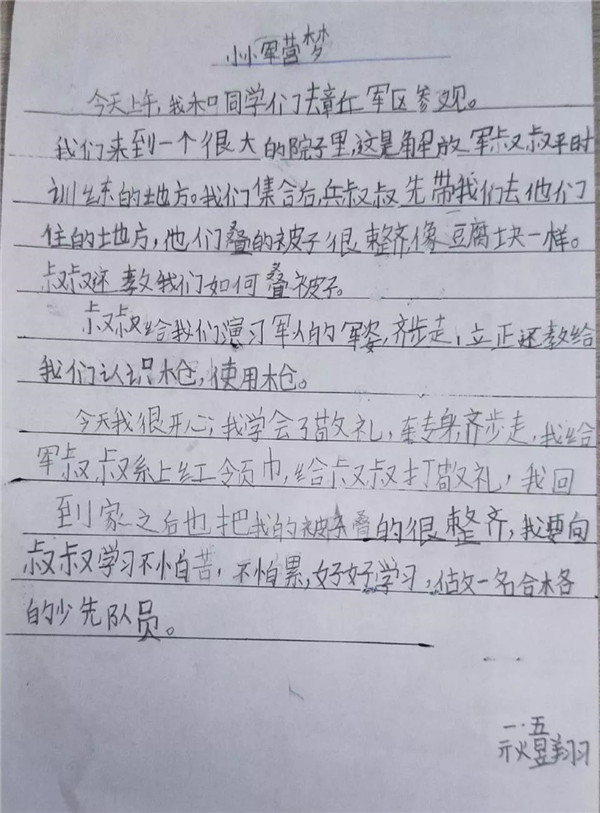 小小军营梦
今天上午,我和同学们去章丘军区参观。
我们来到一个很大的院子里,这是解放军叔叔平时
训练的地方。我们集合后,兵叔叔先带我们去他们
住的地方,他们叠的被子很整齐像豆腐块一样。
叔叔还教我们如何叠被子。
叔叔给我们演习军人的军姿,齐步走,立正还教给
我们认识枪,使用枪。
今天我很开心,我学会了敬礼,转身齐步走,我给
军叔叔系上红领巾,给叔叔打敬礼,我回
到家之后也把我的被子叠的很整齐,我要向
叔叔学习不怕苦,不怕累,好好学习,做一名合格
的少先队员。
一·五
昱翔